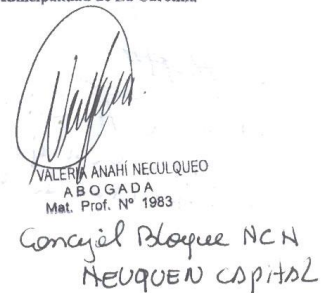 VALERIA ANAHÍ NECULQUEO
ABOGADA
Mat. Prof. Nº 1983
Concejal Bloque NCN
NEUQUEN CAPITAL